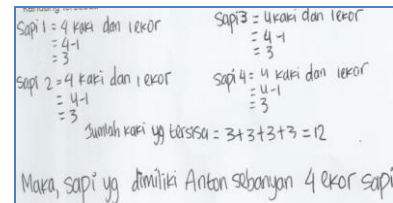 Sapi 1 = 4 kaki dan 1 ekor
= 4-1
= 3
Sapi 2 = 4 kaki dan 1 ekor
= 4-1
= 3
Sapi 3 = 4 kaki dan 1 ekor
= 4-1
= 3
Sapi 4 = 4 kaki dan 1 ekor
= 4-1
= 3
Jumlah kaki yg tersisa = 3+3+3+3 = 12
Maka, sapi yg dimiliki Anton sebanyan 4 ekor sapi